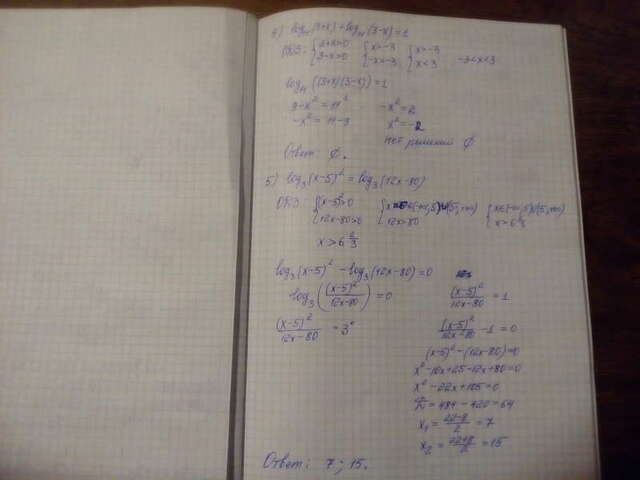 4) log₁₁(3+x) + log₁₁(3-x) = 1
ОДЗ: { 3+x>0 { x>-3 { x>-3
3-x>0 -x<-3 x<3 -3<x<3
log₁₁((3+x)(3-x)) = 1
9-x² = 11¹ -x² = 2
-x² = 11-9 x² = -2
нет решений ∅
Ответ: ∅.
5) log₃(x-5)² = log₃(12x-80)
ОДЗ: { (x-5)²>0 { x∈(-∞,5)∪(5,+∞) { x∈(-∞,5)∪(5,+∞)
12x-80>0 12x>80 x>6 2/3
x>6 2/3
log₃(x-5)² - log₃(12x-80) = 0
log₃((x-5)²/(12x-80)) = 0 (x-5)²/(12x-80) = 1
(x-5)²/(12x-80) = 3⁰ (x-5)²/(12x-80) - 1 = 0
(x-5)² - (12x-80) = 0
x² - 10x + 25 - 12x + 80 = 0
x² - 22x + 105 = 0
= 484 - 420 = 64
x₁ = (22-8)/2 = 7
x₂ = (22+8)/2 = 15
Ответ: 7; 15.